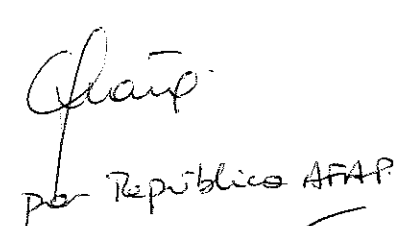 por República AFAP.